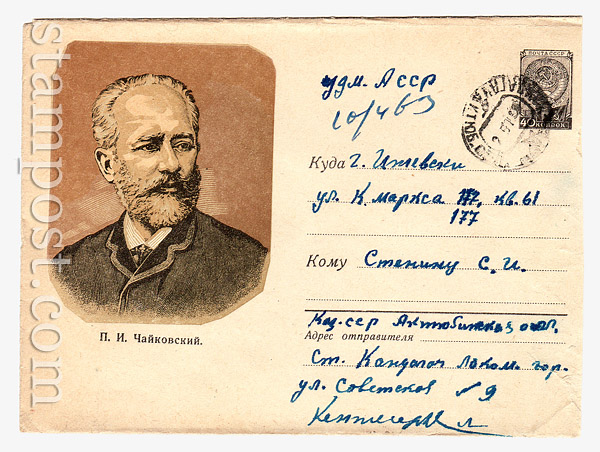 stampost.com
ПОЧТА СССР
40 КОПЕЕК
удм. АССР
10/463
Куда г. Ижевск
ул. К. Маркса 177, кв. 61
177
Кому Стенину С. И.
П. И. Чайковский.
Каз. ССР Актюбинская обл.
Адрес отправителя
Ст. Кандагач
ул. Советская 9